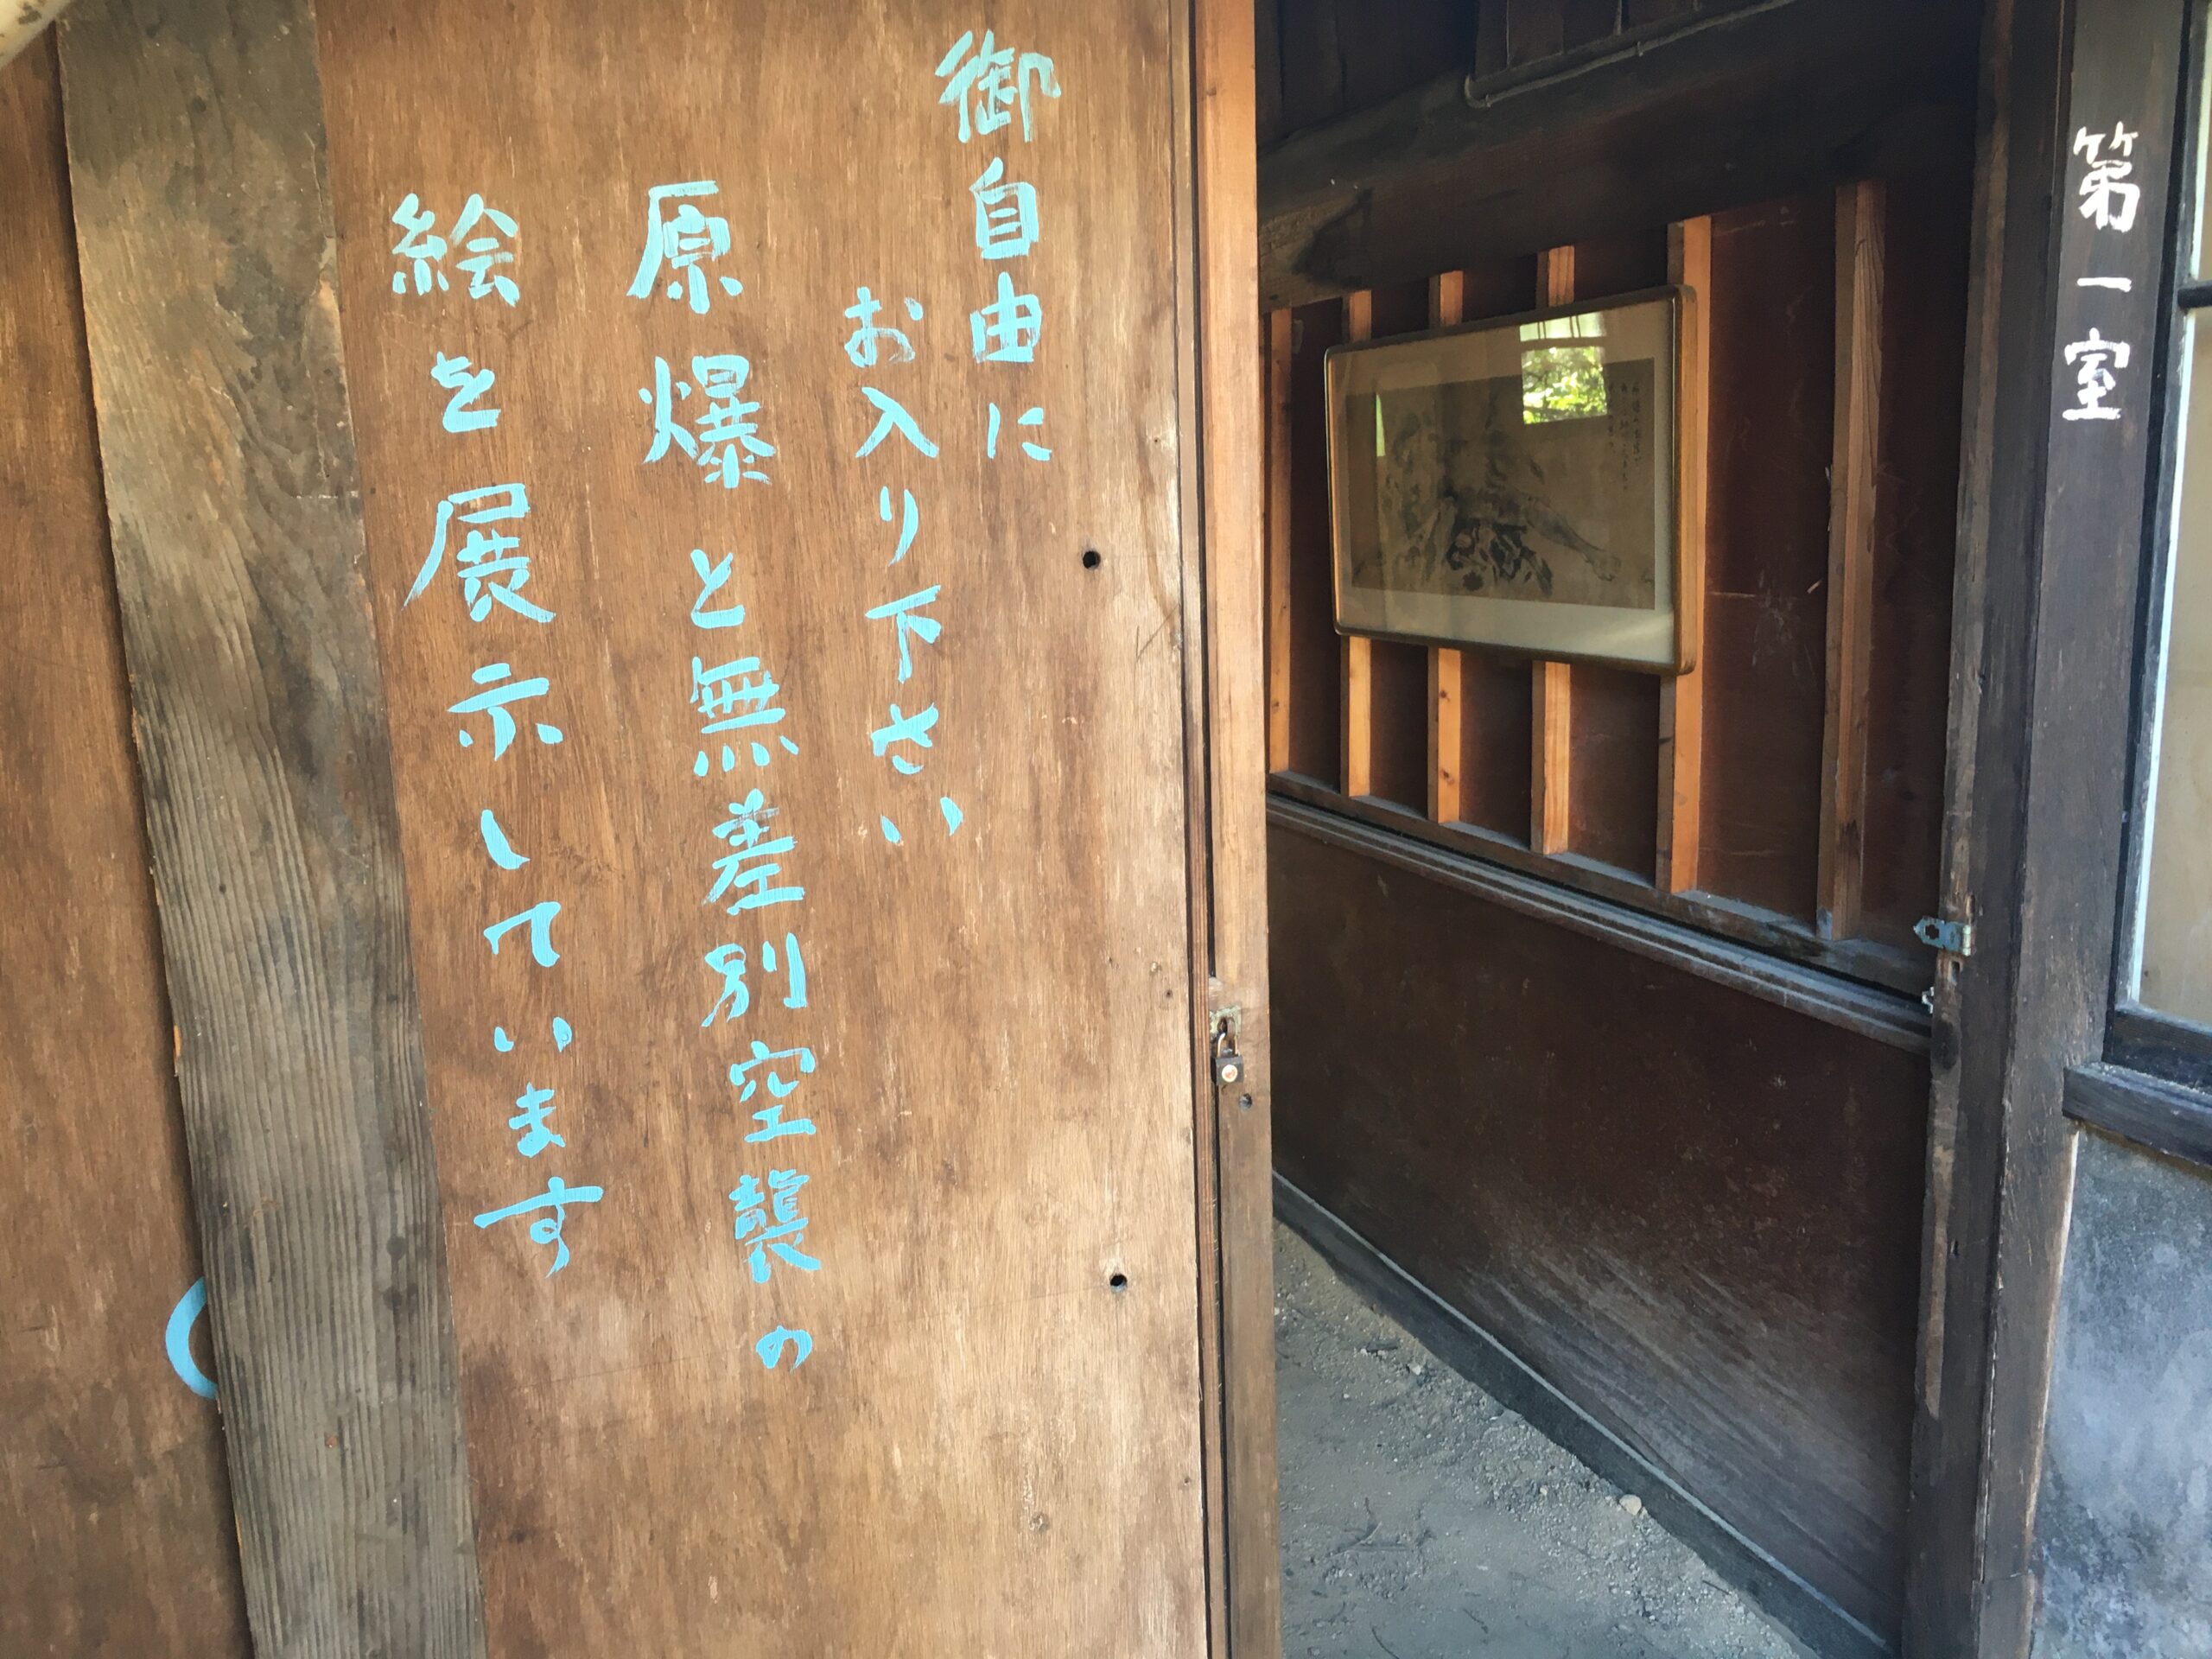 御自由に
お入り下さい
原爆と無差別空襲の
絵を展示しています
第一室